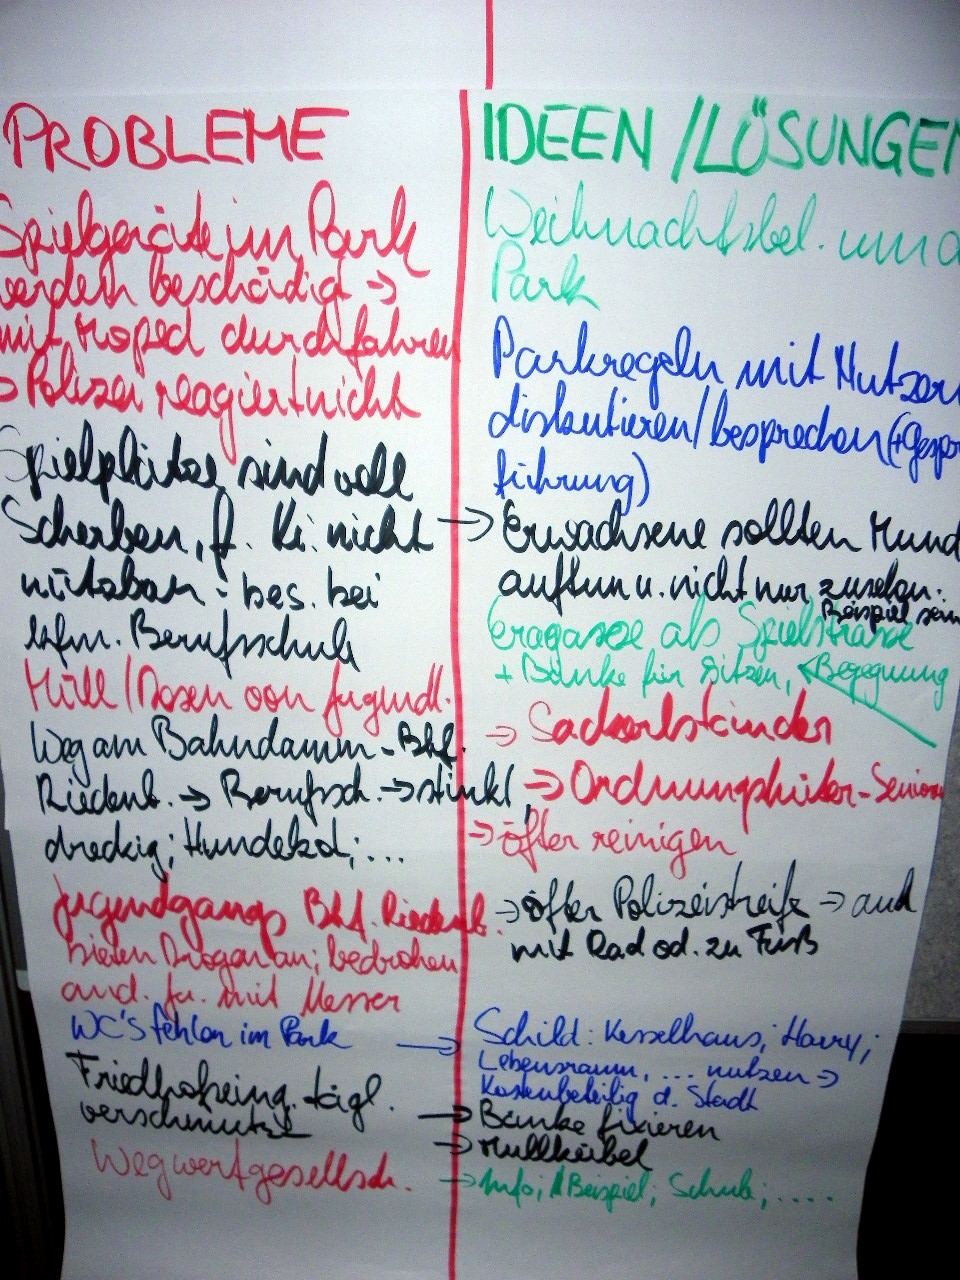 PROBLEME
Spielgeräte im Park
werden beschädigt →
mit Moped durchfahren
→ Polizei reagiert nicht
Spielplätze sind voll
Scherben, f. Ki. nicht
nützbar - bes. bei
kfm. Berufsschule
Müll/Dosen von Jugendl.
Weg am Bahndamm - Bhf.
Riedenb. → Berufsch. → stinkt,
dreckig; Hundekot; ...
Jugendgangs Bhf. Riedenb.
bieten Drogen an; bedrohen
and. Ju. mit Messer
WC's fehlen im Park
Friedhofeing. tägl.
verschmutzt
Wegwerfgesellsch.
IDEEN / LÖSUNGEN
Weihnachtsbel. um d
Park
Parkregeln mit Nutzern
diskutieren/besprechen (+Gespr
führung)
→ Erwachsene sollten Mund
auftun u. nicht nur zusehen.
Beispiel sein
als Spielstrasse
+ Bänke für Sitzen, Begegnung
→ Sackerlständer
→ Ordnungshüter - Senioren
→ öfter reinigen
→ öfter Polizeistreife → auch
mit Rad od. zu Fuß
→ Schild: Kesselhaus, Harry,
Lebensraum, ... nutzen →
Kostenbeteilig d. Stadt
→ Bänke fixieren
→ Müllkübel
→ Info; Beispiel; Schule; .....